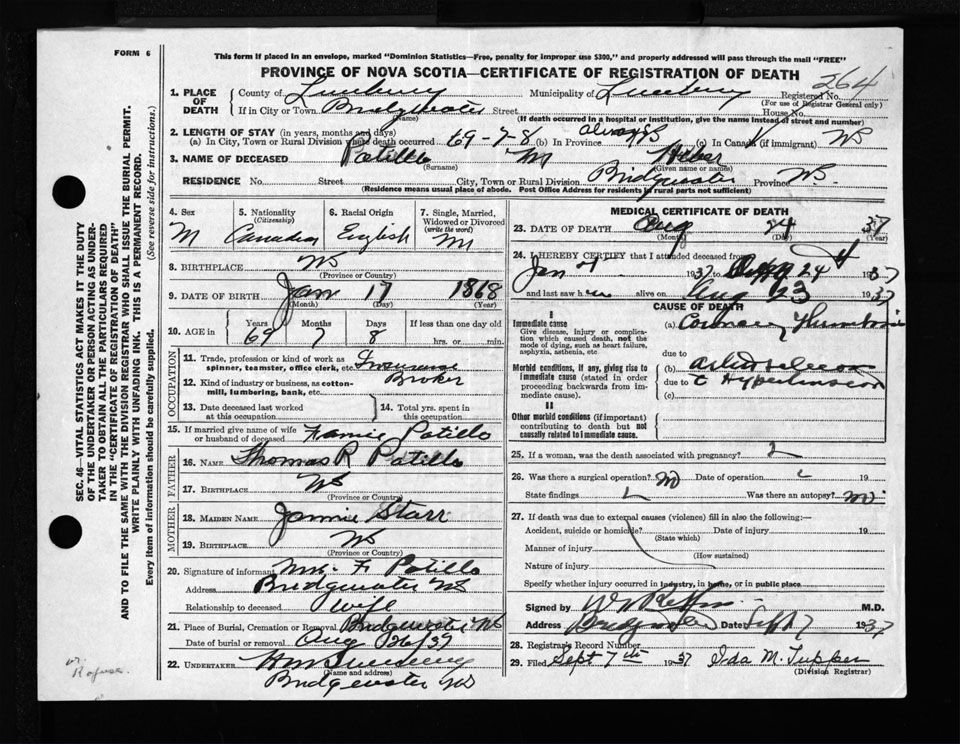 FORM 6
This form if placed in an envelope, marked "Dominion Statistics—Free, penalty for improper use $300," and properly addressed will pass through the mail "FREE"
PROVINCE OF NOVA SCOTIA—CERTIFICATE OF REGISTRATION OF DEATH
264
1. PLACE OF DEATH County of Lunenburg Municipality of Lunenburg Registered No.
(For use of Registrar General only)
If in City or Town Bridgewater Street House No.
(Name) (If death occurred in a hospital or institution, give the name instead of street and number)
2. LENGTH OF STAY (in years, months and days)
(a) In City, Town or Rural Division where death occurred 69-7-8 (b) In Province always NS (c) In Canada (if immigrant) NS
3. NAME OF DECEASED Patillo M Heber
(Surname) (Given name or names)
RESIDENCE No. Street City, Town or Rural Division Bridgewater Province NS.
(Residence means usual place of abode. Post Office Address for residents in rural parts not sufficient)
SEC. 46—VITAL STATISTICS ACT MAKES IT THE DUTY
OF THE UNDERTAKER OR PERSON ACTING AS UNDER-
TAKER TO OBTAIN ALL THE PARTICULARS REQUIRED
IN THE "CERTIFICATE OF REGISTRATION OF DEATH"
AND TO FILE THE SAME WITH THE DIVISION REGISTRAR WHO SHALL ISSUE THE BURIAL PERMIT.
WRITE PLAINLY WITH UNFADING INK. THIS IS A PERMANENT RECORD.
Every item of information should be carefully supplied. (See reverse side for instructions.)
4. Sex M
5. Nationality (Citizenship) Canadian
6. Racial Origin English
7. Single, Married, Widowed or Divorced (write the word) M
8. BIRTHPLACE NS
(Province or Country)
9. DATE OF BIRTH Jan 17 1868
(Month) (Day) (Year)
10. AGE in Years 69 Months 7 Days 8 If less than one day old
hrs. or min.
OCCUPATION
11. Trade, profession or kind of work as spinner, teamster, office clerk, etc. Insurance
12. Kind of industry or business, as cotton-mill, lumbering, bank, etc. Broker
13. Date deceased last worked at this occupation
14. Total yrs. spent in this occupation
15. If married give name of wife or husband of deceased Fannie Patillo
FATHER
16. NAME Thomas R Patillo
17. BIRTHPLACE NS
(Province or Country)
MOTHER
18. MAIDEN NAME Jannie Starr
19. BIRTHPLACE NS
(Province or Country)
20. Signature of informant Mrs. F. Patillo
Address Bridgewater NS
Relationship to deceased Wife
21. Place of Burial, Cremation or Removal Bridgewater NS
Date of burial or removal Aug 26/37
22. UNDERTAKER
(Name and address)
Bridgewater NS
MEDICAL CERTIFICATE OF DEATH
23. DATE OF DEATH Aug 24 37
(Month) (Day) (Year)
24. I HEREBY CERTIFY that I attended deceased from
Jan 1937 24 1937
and last saw him alive on Aug 23 1937
CAUSE OF DEATH
I
Immediate cause
Give disease, injury or complication which caused death, not the mode of dying, such as heart failure, asphyxia, asthenia, etc
(a) Coronary Thrombosis
due to
Morbid conditions, if any, giving rise to immediate cause (stated in order proceeding backwards from immediate cause).
(b) arteriosclerosis
due to c Hypertension
(c)
II
Other morbid conditions (if important) contributing to death but not causally related to immediate cause.
25. If a woman, was the death associated with pregnancy?
26. Was there a surgical operation? No Date of operation 19
State findings Was there an autopsy? No
27. If death was due to external causes (violence) fill in also the following:—
Accident, suicide or homicide? Date of injury 19
(State which)
Manner of injury
(How sustained)
Nature of injury
Specify whether injury occurred in industry, in home, or in public place
Signed by M.D.
Address Bridgewater Date Sept 7 1937
28. Registrar's Record Number
29. Filed Sept 7th 1937 Ida M. Tupper
(Division Registrar)